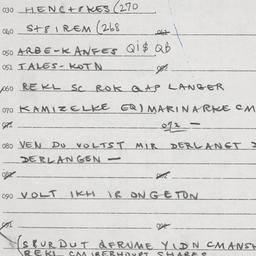 030 HENC+PKES (270
040 S+PIREM (268
050 ARBE-KANFES QI$ QD
051 TALES-KOTN
060 REKL SC ROK Q+P LANGER
070 KAMIZELKE EQ) MARINARKE CM
072 —
080 VEN DU VOLTST MIR DERLANGT
DERLANGEN —
090 VOLT IKH IR ONGETON
(SPURDUT QFRNME YIDN CMANSH
REKL CM IBERHOUPT SHABES